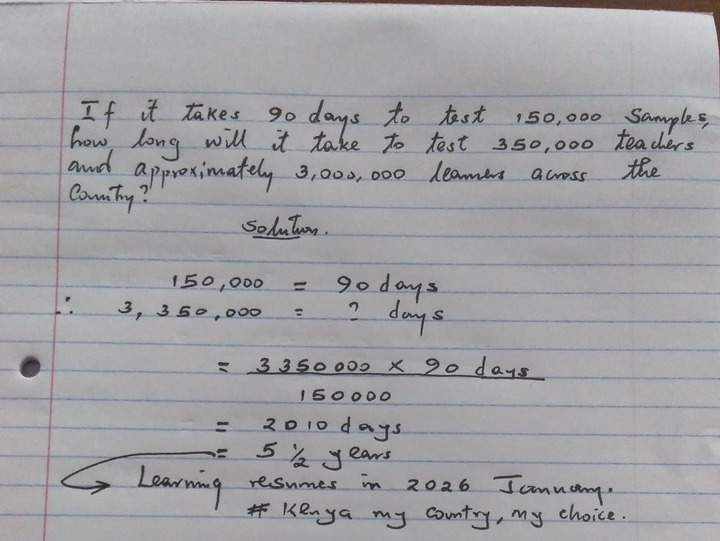 If it takes 90 days to test 150,000 Samples,
how long will it take to test 350,000 teachers
and approximately 3,000,000 learners across the
Country?
Solution.
150,000 = 90 days
∴ 3,350,000 = ? days
= 3350000 × 90 days
150000
= 2010 days
= 5 1/2 years
Learning resumes in 2026 January.
# Kenya my country, my choice.